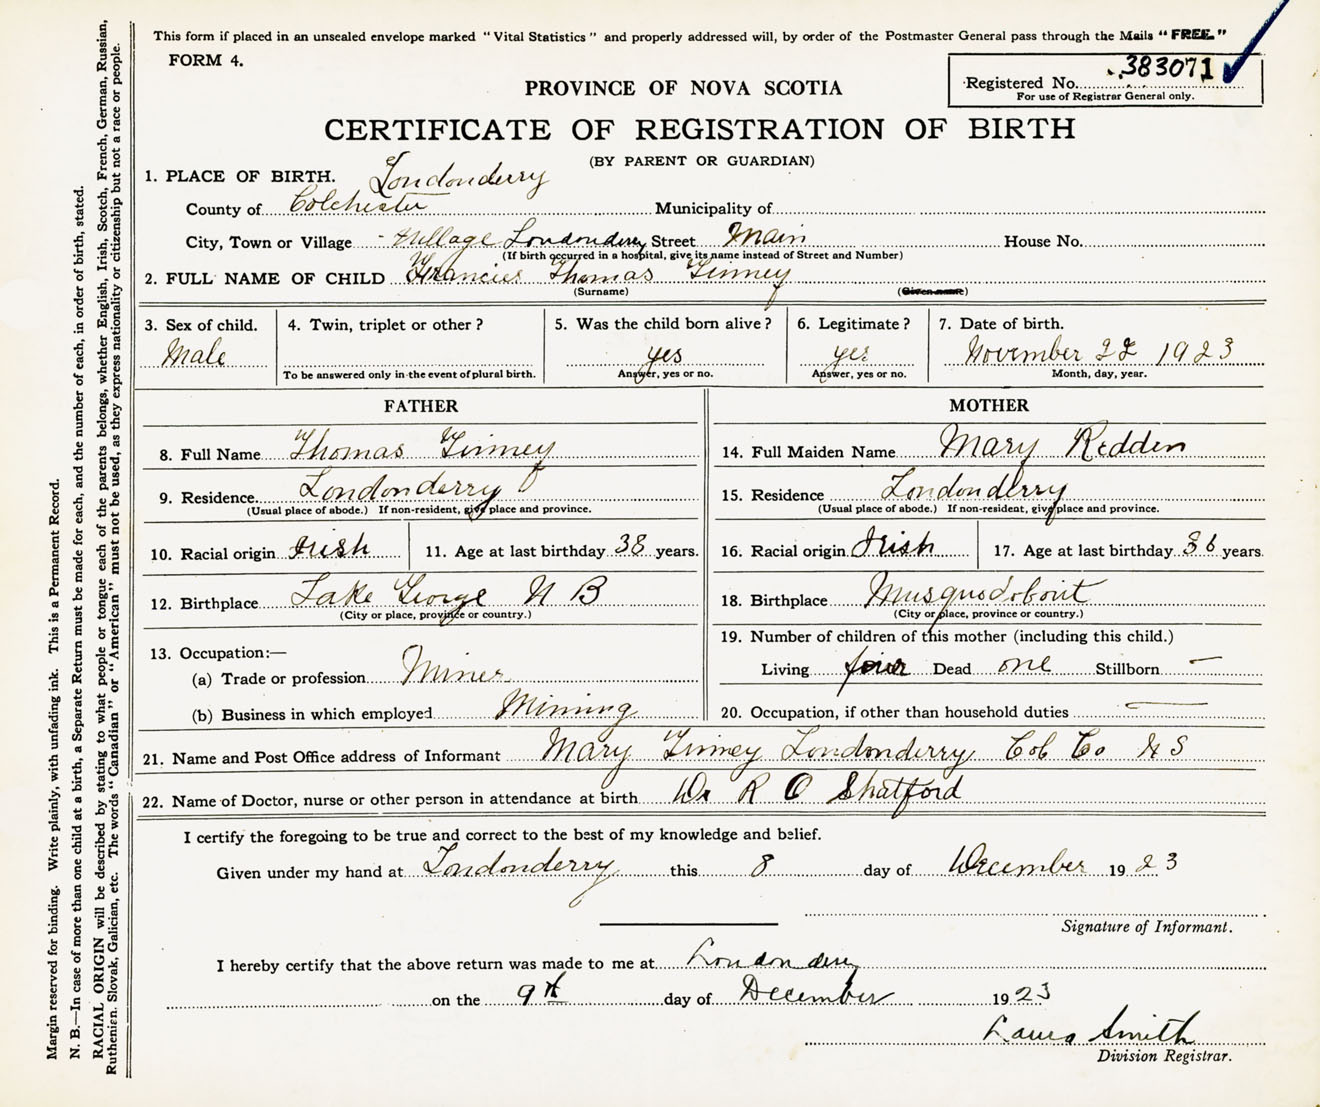 This form if placed in an unsealed envelope marked "Vital Statistics" and properly addressed will, by order of the Postmaster General pass through the Mails "FREE."
FORM 4.
Registered No. 383071
For use of Registrar General only.
PROVINCE OF NOVA SCOTIA
CERTIFICATE OF REGISTRATION OF BIRTH
(BY PARENT OR GUARDIAN)
1. PLACE OF BIRTH. Londonderry
County of Colchester Municipality of
City, Town or Village Village Londonderry Street Main House No.
(If birth occurred in a hospital, give its name instead of Street and Number)
2. FULL NAME OF CHILD Francies Thomas Finney
(Surname) (Given name)
3. Sex of child. 4. Twin, triplet or other? 5. Was the child born alive? 6. Legitimate? 7. Date of birth.
Male yes yes November 22 1923
To be answered only in the event of plural birth. Answer, yes or no. Answer, yes or no. Month, day, year.
FATHER MOTHER
8. Full Name Thomas Finney 14. Full Maiden Name Mary Redden
9. Residence Londonderry 15. Residence Londonderry
(Usual place of abode.) If non-resident, give place and province. (Usual place of abode.) If non-resident, give place and province.
10. Racial origin Irish 11. Age at last birthday 38 years. 16. Racial origin Irish 17. Age at last birthday 36 years.
12. Birthplace Lake George N B 18. Birthplace Musquodoboit
(City or place, province or country.) (City or place, province or country.)
13. Occupation:— 19. Number of children of this mother (including this child.)
(a) Trade or profession Miner Living four Dead one Stillborn —
(b) Business in which employed Mining 20. Occupation, if other than household duties —
21. Name and Post Office address of Informant Mary Finney Londonderry Col Co N S
22. Name of Doctor, nurse or other person in attendance at birth Dr R O Shatford
I certify the foregoing to be true and correct to the best of my knowledge and belief.
Given under my hand at Londonderry this 8 day of December 1923
Signature of Informant.
I hereby certify that the above return was made to me at Londonderry
on the 9th day of December 1923
Laura Smith
Division Registrar.
Margin reserved for binding. Write plainly, with unfading ink. This is a Permanent Record.
N. B.—In case of more than one child at a birth, a Separate Return must be made for each, and the number of each, in order of birth, stated.
RACIAL ORIGIN will be described by stating to what people or tongue each of the parents belongs, whether English, Irish, Scotch, French, German, Russian,
Ruthenien, Slovak, Galician, etc. The words "Canadian" or "American" must not be used, as they express nationality or citizenship but not a race or people.